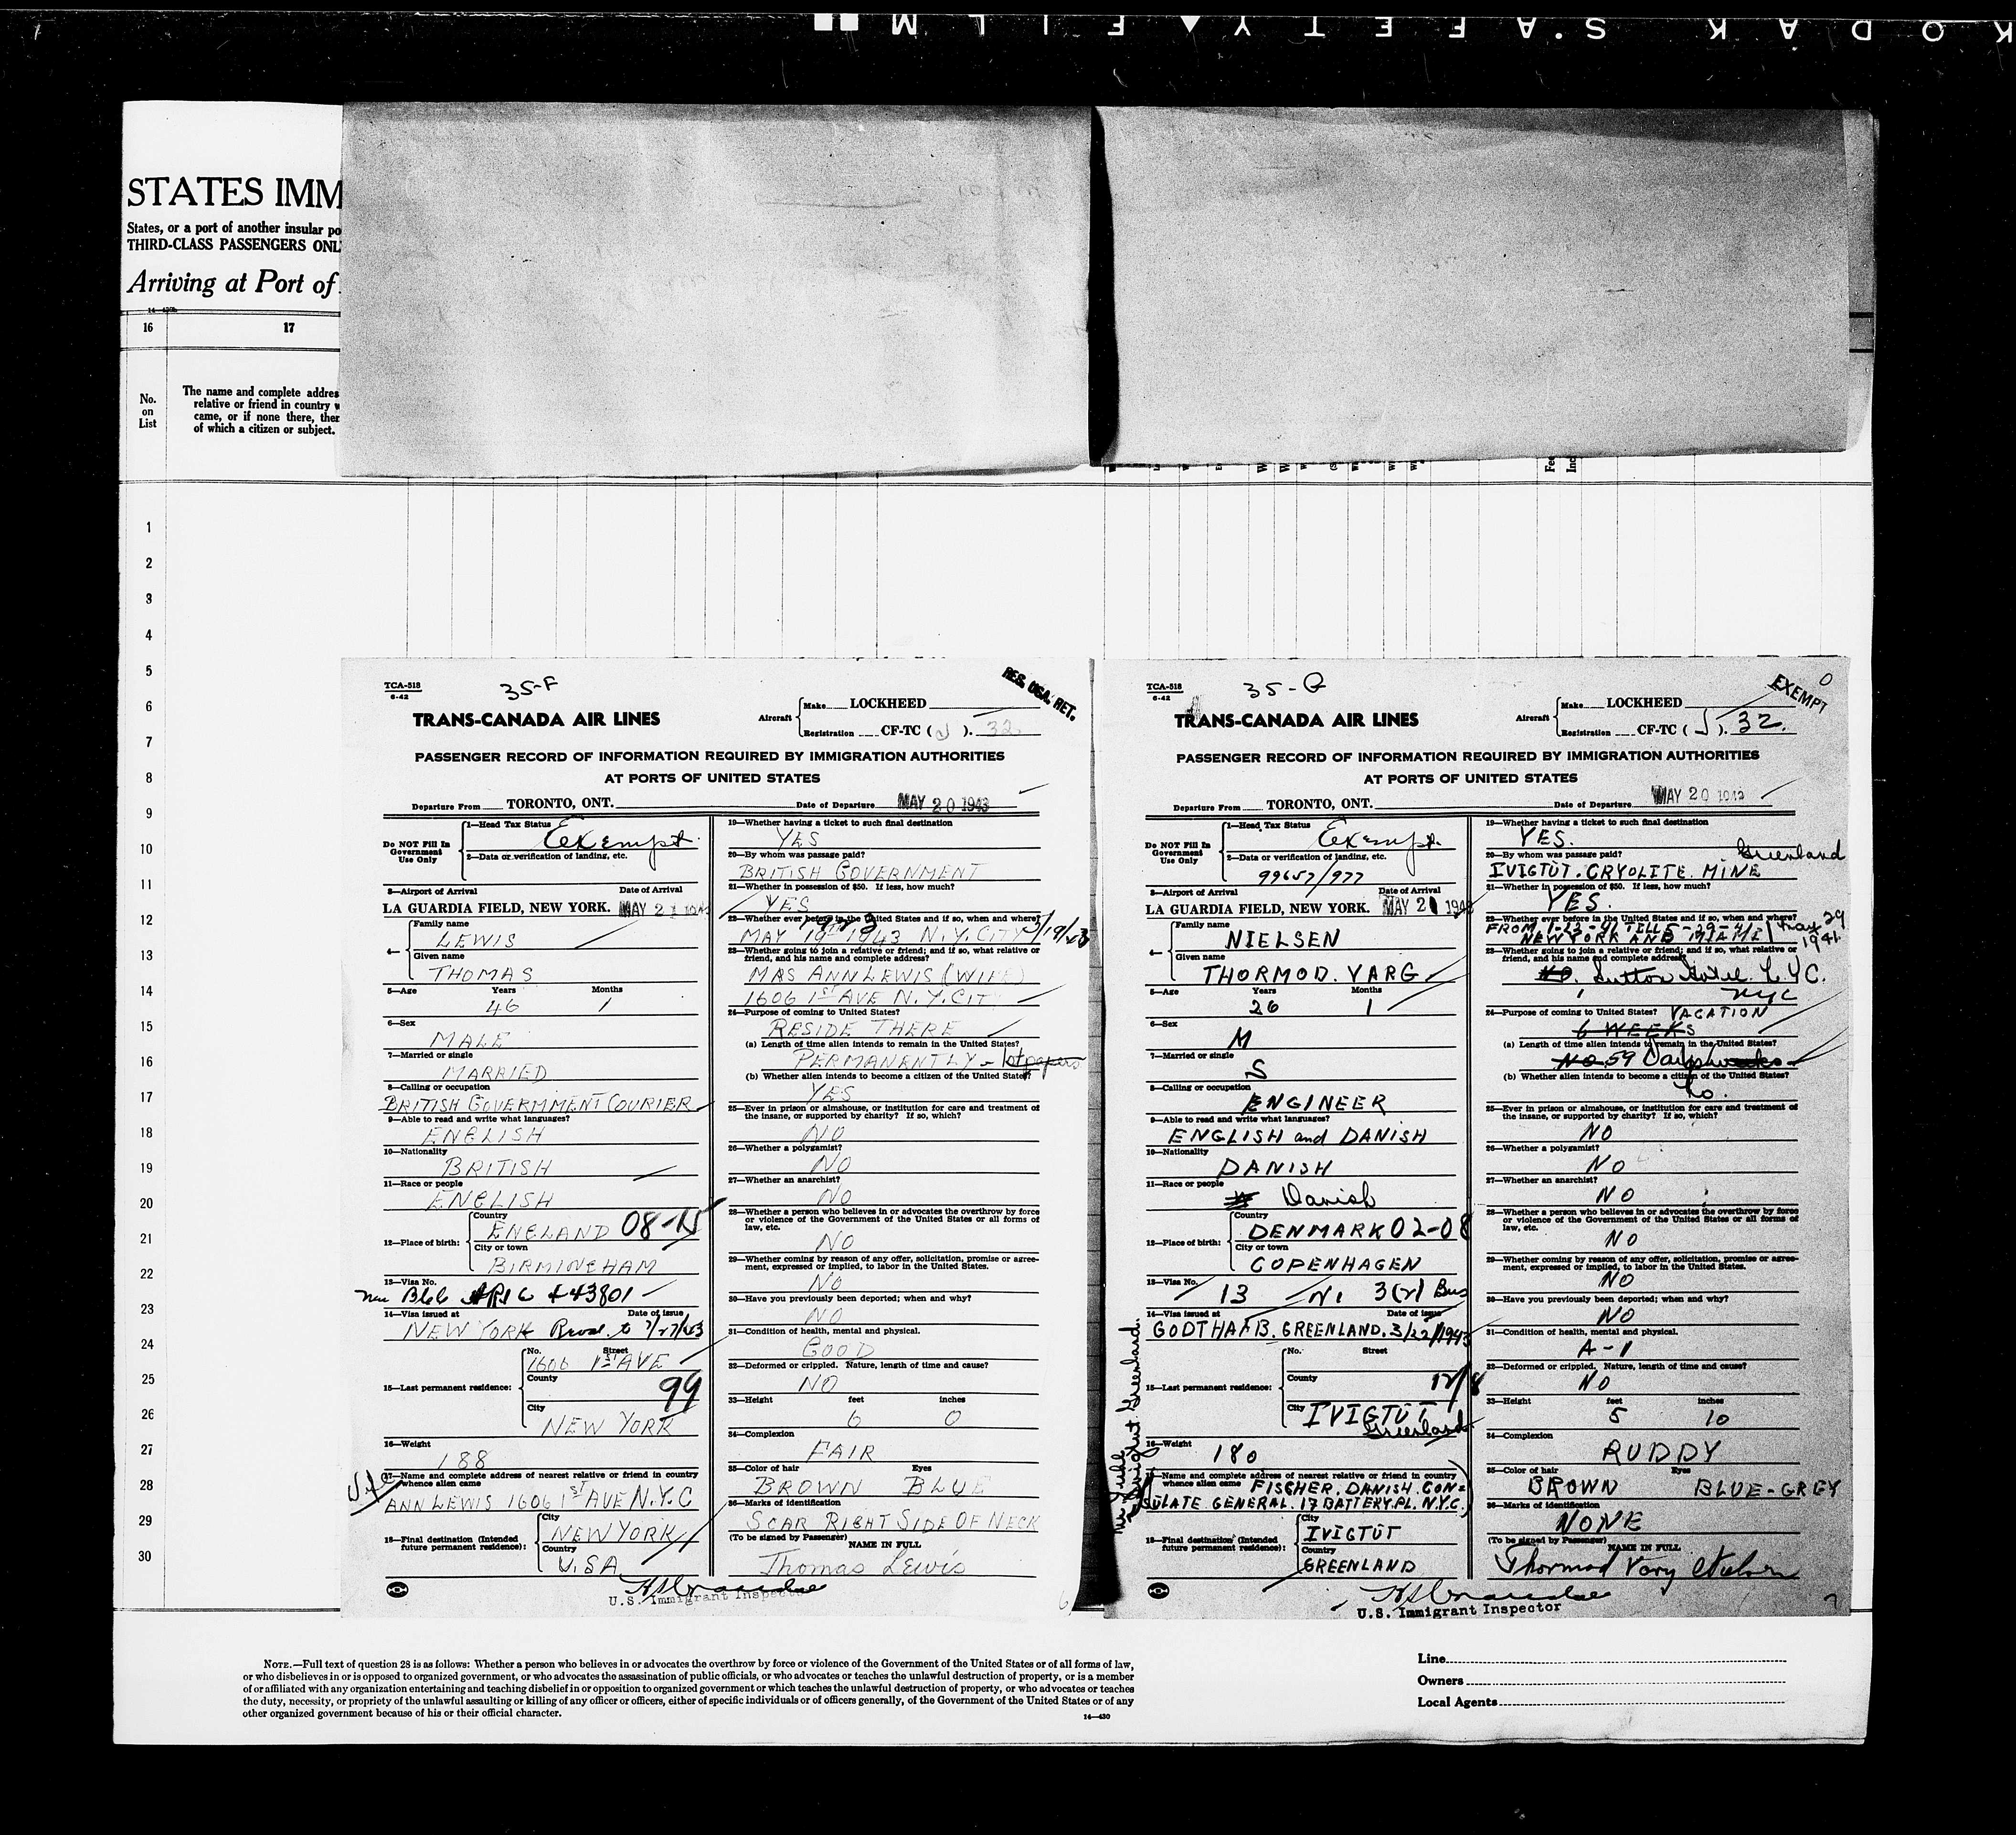 KODAK SAFETY FILM
STATES IMM
States, or a port of another insular po
THIRD-CLASS PASSENGERS ONL
Arriving at Port of
16 17
No.
on
List
The name and complete addres
relative or friend in country w
came, or if none there, then
of which a citizen or subject.
1
2
3
4
5
6
7
8
9
10
11
12
13
14
15
16
17
18
19
20
21
22
23
24
25
26
27
28
29
30
TCA-518
6-42
35-F
RES. USA. RET.
TRANS-CANADA AIR LINES
Aircraft
Make LOCKHEED
Registration CF-TC (J). 32
PASSENGER RECORD OF INFORMATION REQUIRED BY IMMIGRATION AUTHORITIES
AT PORTS OF UNITED STATES
Departure From TORONTO, ONT. Date of Departure MAY 20 1943
Do NOT Fill In
Government
Use Only
1—Head Tax Status
Exempt
2—Data or verification of landing, etc.
3—Airport of Arrival Date of Arrival
LA GUARDIA FIELD, NEW YORK. MAY 21 1943
4— Family name
LEWIS
Given name
THOMAS
5—Age Years Months
46 1
6—Sex
MALE
7—Married or single
MARRIED
8—Calling or occupation
BRITISH GOVERNMENT COURIER
9—Able to read and write what languages?
ENGLISH
10—Nationality
BRITISH
11—Race or people
ENGLISH
12—Place of birth:
Country
ENGLAND 08-15
City or town
BIRMINGHAM
13—Visa No.
14—Visa issued at Date of issue
NEW YORK
15—Last permanent residence:
No. Street
1606 1ST AVE
County
99
City
NEW YORK
16—Weight
188
17—Name and complete address of nearest relative or friend in country
whence alien came
ANN LEWIS 1606 1ST AVE N.Y.C
18—Final destination (Intended
future permanent residence):
City
NEW YORK
Country
U.S.A
19—Whether having a ticket to such final destination
YES
20—By whom was passage paid?
BRITISH GOVERNMENT
21—Whether in possession of $50. If less, how much?
YES
22—Whether ever before in the United States and if so, when and where?
1923
MAY 19TH 1943 N.Y. CITY 5/19/43
23—Whether going to join a relative or friend; and if so, what relative or
friend, and his name and complete address?
MRS ANN LEWIS (WIFE)
1606 1ST AVE N.Y. CITY
24—Purpose of coming to United States?
RESIDE THERE
(a) Length of time alien intends to remain in the United States?
PERMANENTLY - 1st papers
(b) Whether alien intends to become a citizen of the United States?
YES
25—Ever in prison or almshouse, or institution for care and treatment of
the insane, or supported by charity? If so, which?
NO
26—Whether a polygamist?
NO
27—Whether an anarchist?
NO
28—Whether a person who believes in or advocates the overthrow by force
or violence of the Government of the United States or all forms of
law, etc.
NO
29—Whether coming by reason of any offer, solicitation, promise or agree-
ment, expressed or implied, to labor in the United States.
NO
30—Have you previously been deported; when and why?
NO
31—Condition of health, mental and physical.
GOOD
32—Deformed or crippled. Nature, length of time and cause?
NO
33—Height feet inches
6 0
34—Complexion
FAIR
35—Color of hair Eyes
BROWN BLUE
36—Marks of identification
SCAR RIGHT SIDE OF NECK
(To be signed by Passenger) NAME IN FULL
Thomas Lewis
U.S. Immigrant Inspector
TCA-518
6-42
35-G
EXEMPT
TRANS-CANADA AIR LINES
Aircraft
Make LOCKHEED
Registration CF-TC (J). 32.
PASSENGER RECORD OF INFORMATION REQUIRED BY IMMIGRATION AUTHORITIES
AT PORTS OF UNITED STATES
Departure From TORONTO, ONT. Date of Departure MAY 20 1943
Do NOT Fill In
Government
Use Only
1—Head Tax Status
Exempt.
2—Data or verification of landing, etc.
99657/977
3—Airport of Arrival Date of Arrival
LA GUARDIA FIELD, NEW YORK. MAY 21 1943
4— Family name
NIELSEN
Given name
THORMOD. VARG
5—Age Years Months
26 1
6—Sex
M
7—Married or single
S
8—Calling or occupation
ENGINEER
9—Able to read and write what languages?
ENGLISH and DANISH
10—Nationality
DANISH
11—Race or people
Danish
12—Place of birth:
Country
DENMARK 02-08
City or town
COPENHAGEN
13—Visa No.
13 3(2) Bus
14—Visa issued at Date of issue
GODTHAAB. GREENLAND. 3/22/1943
15—Last permanent residence:
No. Street
County
City
IVIGTÛT
Greenland
16—Weight
180
17—Name and complete address of nearest relative or friend in country
whence alien came FISCHER. DANISH. CON=
SULATE GENERAL. 17 BATTERY.PL. N.Y.C.
Ivigtut Greenland.
18—Final destination (Intended
future permanent residence):
City
IVIGTÛT
Country
GREENLAND
19—Whether having a ticket to such final destination
YES.
20—By whom was passage paid? Greenland
IVIGTUT. CRYOLITE. MINE
21—Whether in possession of $50. If less, how much?
YES.
22—Whether ever before in the United States and if so, when and where?
FROM 1-22-41 TILL 5-29-41 May 29
NEW YORK AND MIAMI 1941
23—Whether going to join a relative or friend; and if so, what relative or
friend, and his name and complete address?
NO. Sutton Hotel N.Y.C.
NYC
24—Purpose of coming to United States? VACATION
6 WEEKS
(a) Length of time alien intends to remain in the United States?
NO 59 days
(b) Whether alien intends to become a citizen of the United States?
No.
25—Ever in prison or almshouse, or institution for care and treatment of
the insane, or supported by charity? If so, which?
NO
26—Whether a polygamist?
NO
27—Whether an anarchist?
NO
28—Whether a person who believes in or advocates the overthrow by force
or violence of the Government of the United States or all forms of
law, etc.
NO
29—Whether coming by reason of any offer, solicitation, promise or agree-
ment, expressed or implied, to labor in the United States.
NO
30—Have you previously been deported; when and why?
NO
31—Condition of health, mental and physical.
A-1
32—Deformed or crippled. Nature, length of time and cause?
NO
33—Height feet inches
5 10
34—Complexion
RUDDY
35—Color of hair Eyes
BROWN BLUE-GREY
36—Marks of identification
NONE
(To be signed by Passenger) NAME IN FULL
Thormod Varg Nielsen
U.S. Immigrant Inspector
NOTE.—Full text of question 28 is as follows: Whether a person who believes in or advocates the overthrow by force or violence of the Government of the United States or of all forms of law,
or who disbelieves in or is opposed to organized government, or who advocates the assassination of public officials, or who advocates or teaches the unlawful destruction of property, or is a member
of or affiliated with any organization entertaining and teaching disbelief in or opposition to organized government or which teaches the unlawful destruction of property, or who advocates or teaches
the duty, necessity, or propriety of the unlawful assaulting or killing of any officer or officers, either of specific individuals or of officers generally, of the Government of the United States or of any
other organized government because of his or their official character.
14—430
Line
Owners
Local Agents